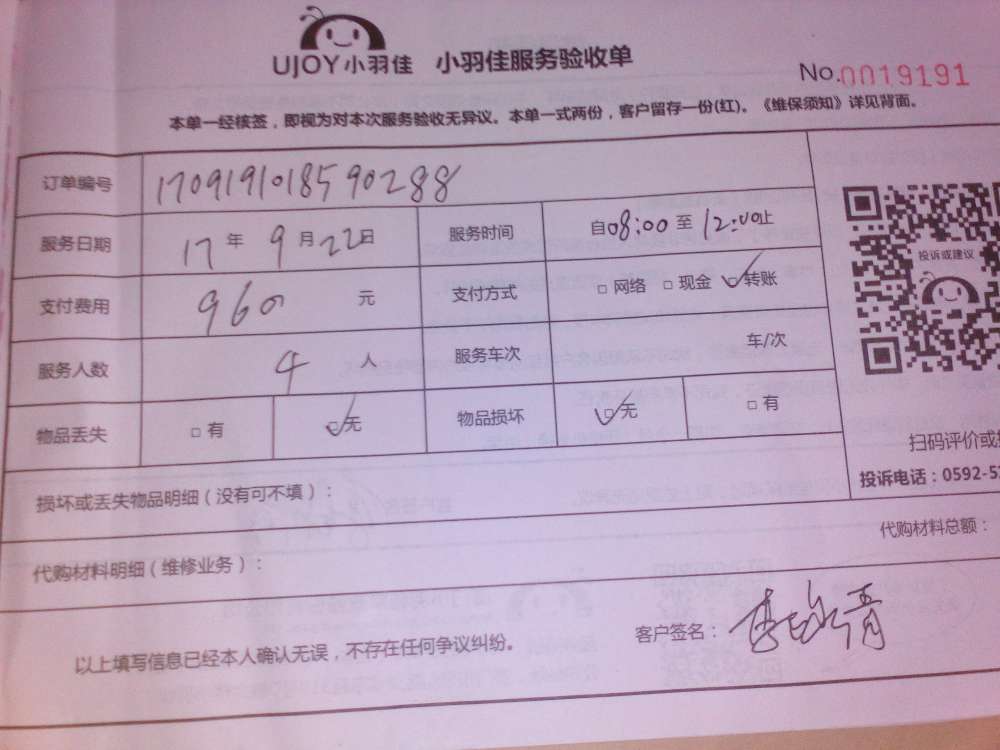 UJOY小羽佳 小羽佳服务验收单
No.0019191
本单一经核签，即视为对本次服务验收无异议。本单一式两份，客户留存一份(红)。《维保须知》详见背面。
订单编号 1709191018590288
服务日期 17年9月22日 服务时间 自08:00至12:00止
支付费用 960元 支付方式 □网络 □现金 ☑转账
服务人数 4人 服务车次 车/次
物品丢失 □有 ☑无 物品损坏 ☑无 □有
投诉或建议
扫码评价或
投诉电话：0592-5
损坏或丢失物品明细（没有可不填）：
代购材料明细（维修业务）： 代购材料总额：
以上填写信息已经本人确认无误，不存在任何争议纠纷。 客户签名：